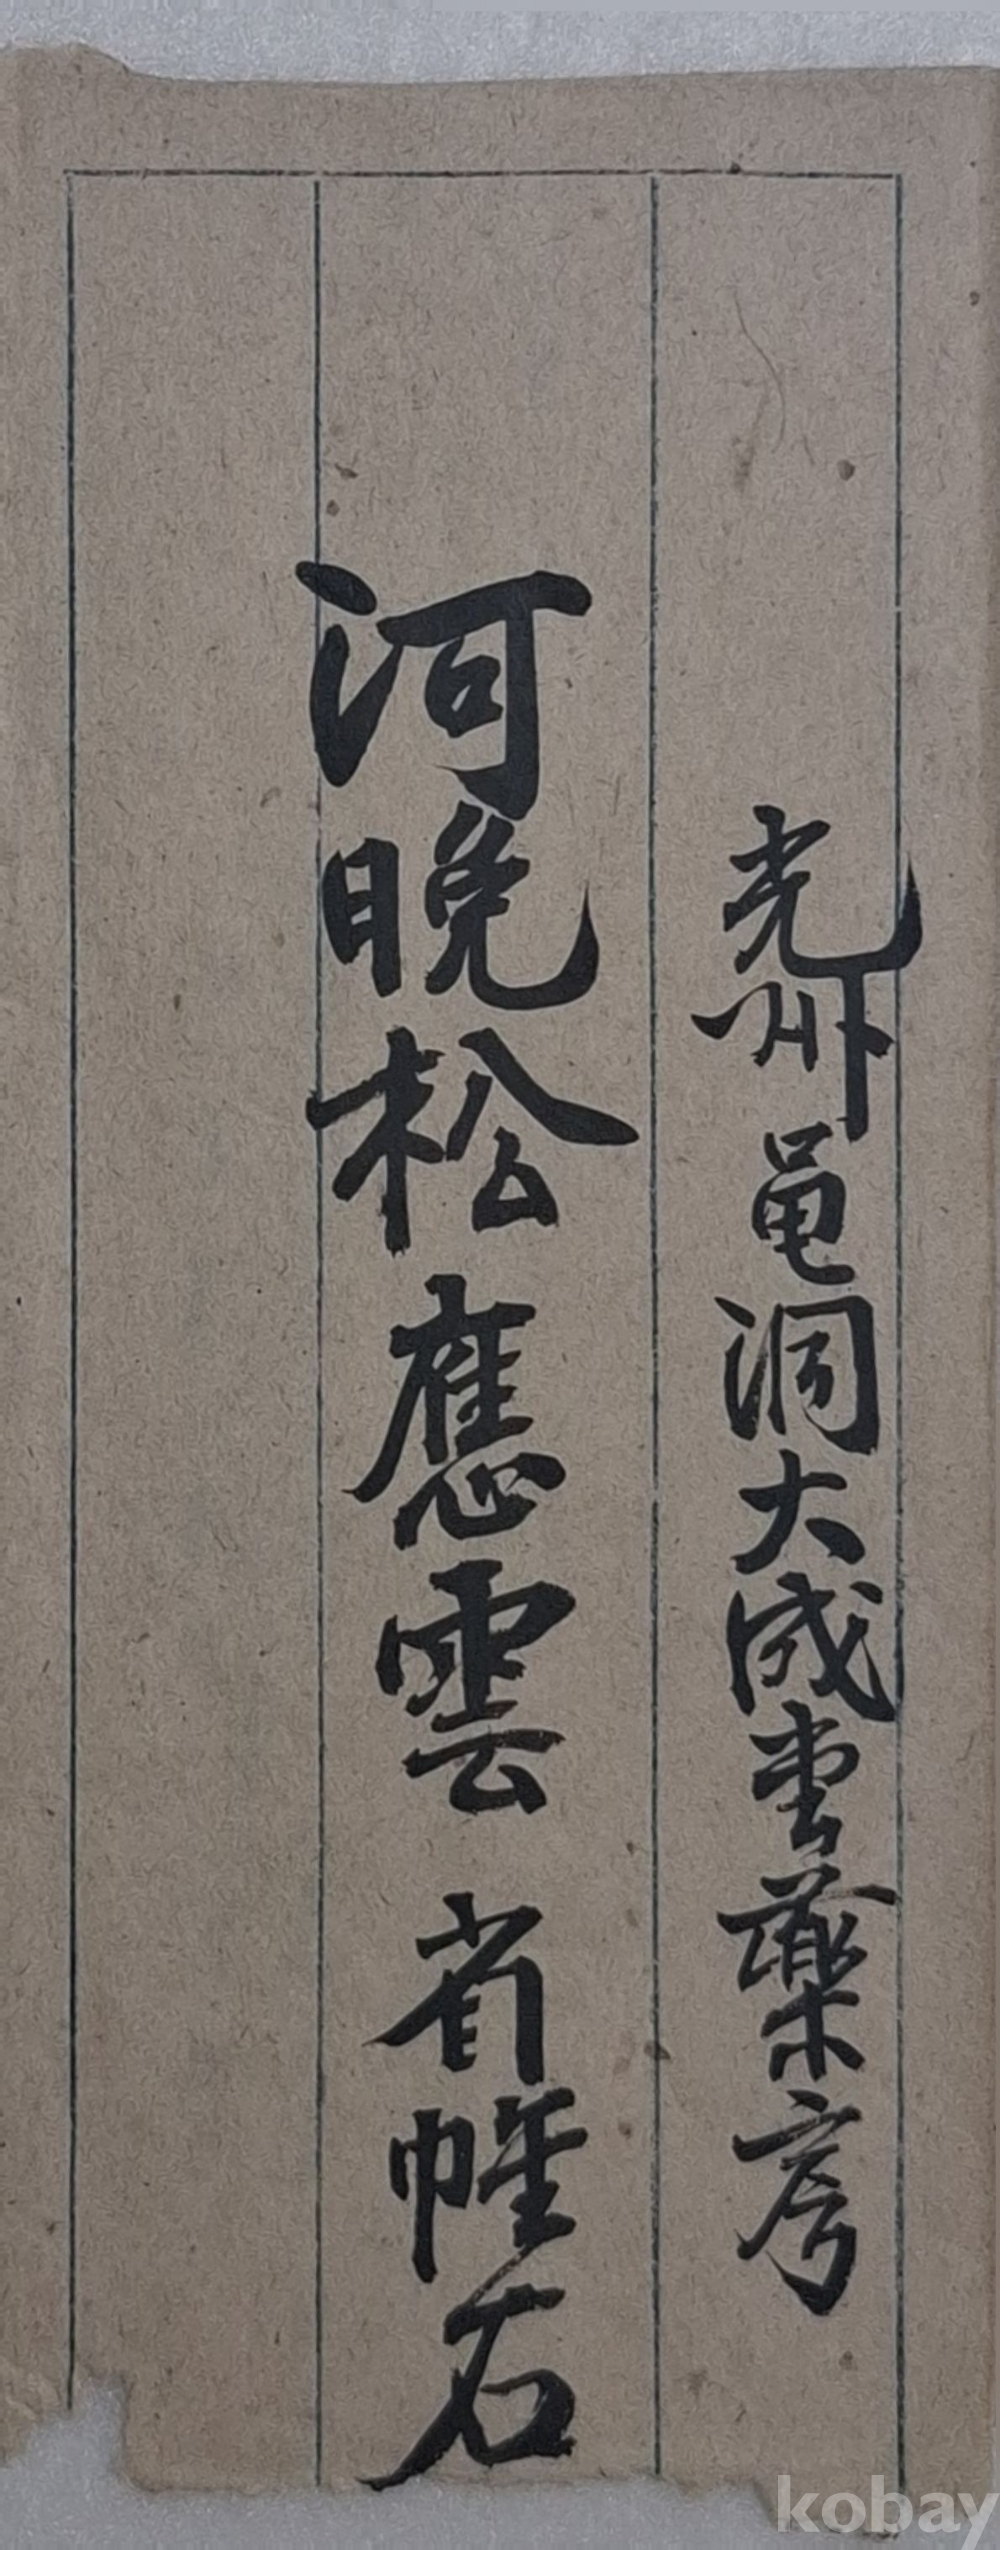 光州邑洞大成堂藥房
河晩松應雲 省帷右
kobay